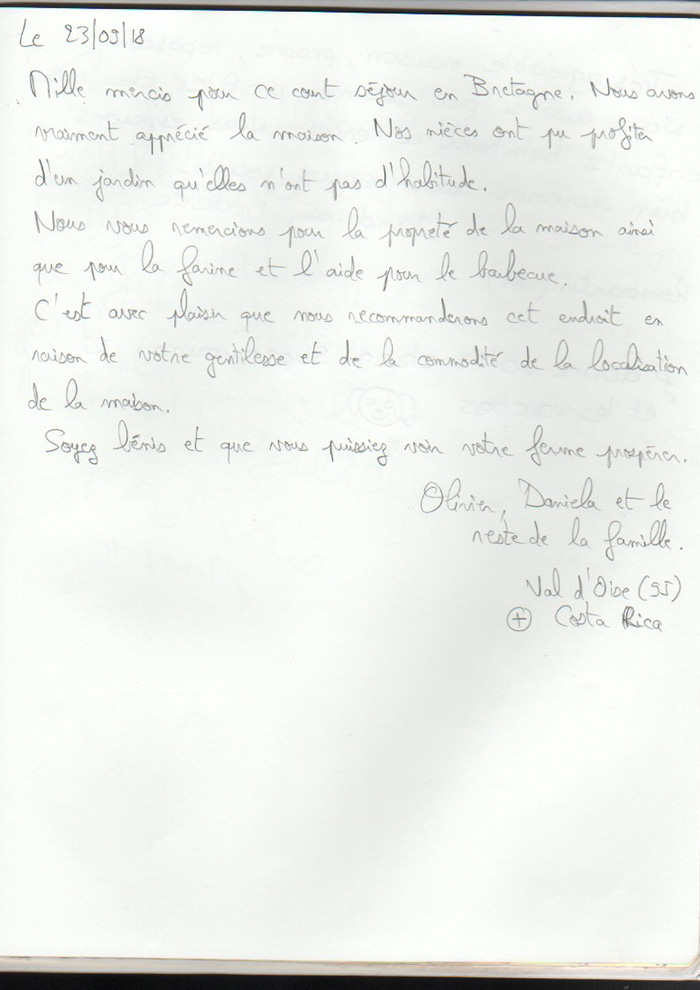 Le 23/09/18
Mille mercis pour ce court séjour en Bretagne. Nous avons
vraiment apprécié la maison. Nos nièces ont pu profiter
d'un jardin qu'elles n'ont pas d'habitude.
Nous vous remercions pour la propreté de la maison ainsi
que pour la farine et l'aide pour le barbecue.
C'est avec plaisir que nous recommanderons cet endroit en
raison de votre gentilesse et de la commodité de la localisation
de la maison.
Soyez bénis et que vous puissiez voir votre ferme prospérer.
Olivier, Daniela et le
reste de la famille.
Val d'Oise (95)
+ Costa Rica